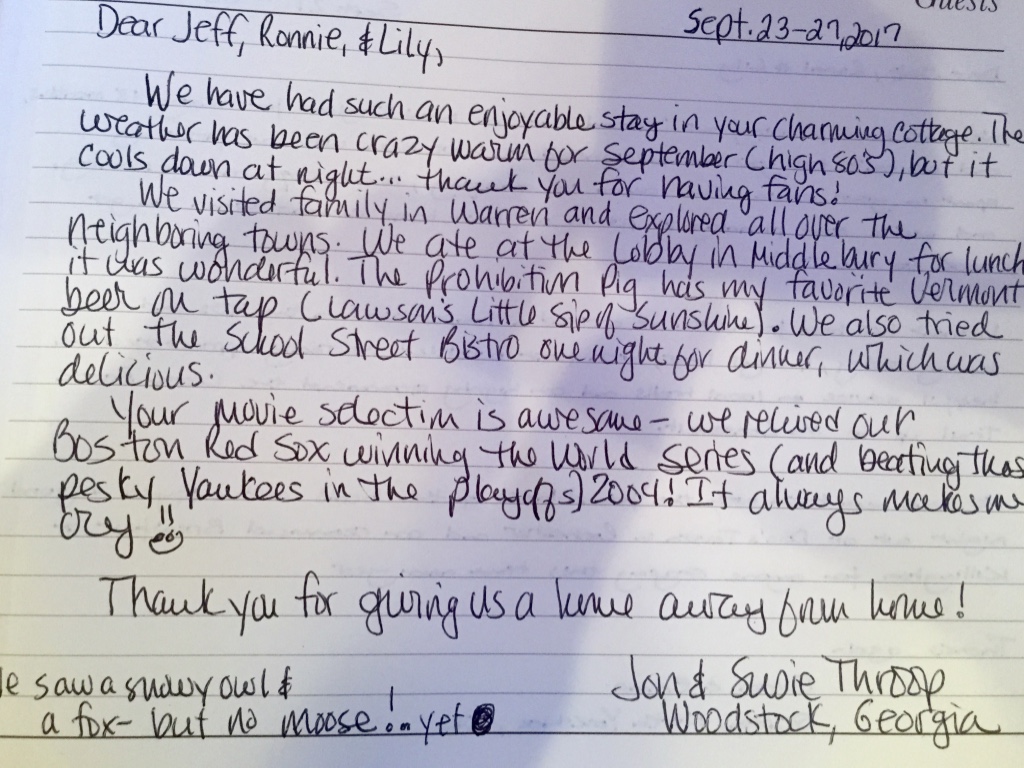 Guests
Sept. 23-27, 2017
Dear Jeff, Ronnie, & Lily,
We have had such an enjoyable stay in your charming cottage. The
weather has been crazy warm for September (high 80s), but it
cools down at night... thank you for having fans!
We visited family in Warren and explored all over the
neighboring towns. We ate at the Lobby in Middlebury for lunch
it was wonderful. The Prohibition Pig has my favorite Vermont
beer on tap (Lawson's Little Sip of Sunshine). We also tried
out the School Street Bistro one night for dinner, which was
delicious.
Your movie selection is awesome - we relived our
Boston Red Sox winning the World Series (and beating thos
pesky Yankees in the playoffs) 2004! It always makes me
cry!!
Thank you for giving us a home away from home!
e saw a snowy owl &
a fox - but no moose!... yet
Jon & Susie Throop
Woodstock, Georgia